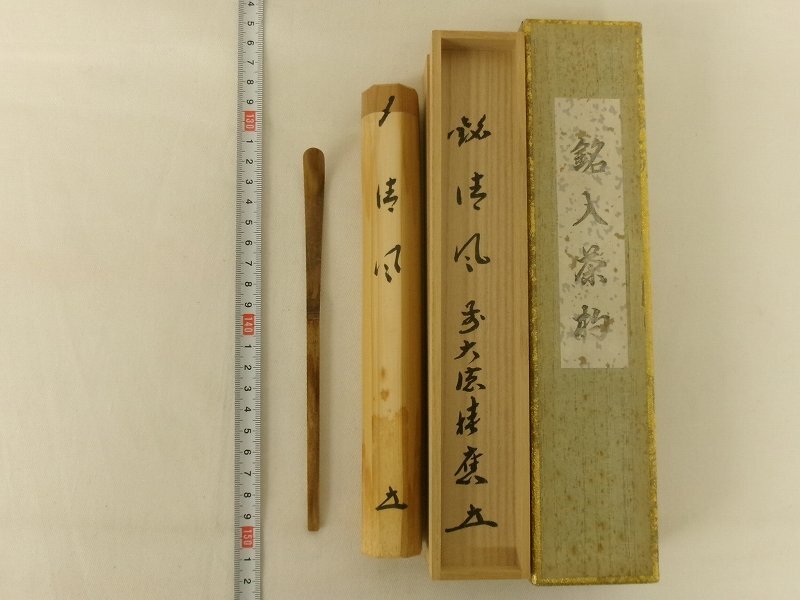 銘入茶杓
銘 清風 前大徳積應
清風
4 5 6 7 8 9 130 1 2 3 4 5 6 7 8 9 140 1 2 3 4 5 6 7 8 9 150 1 2